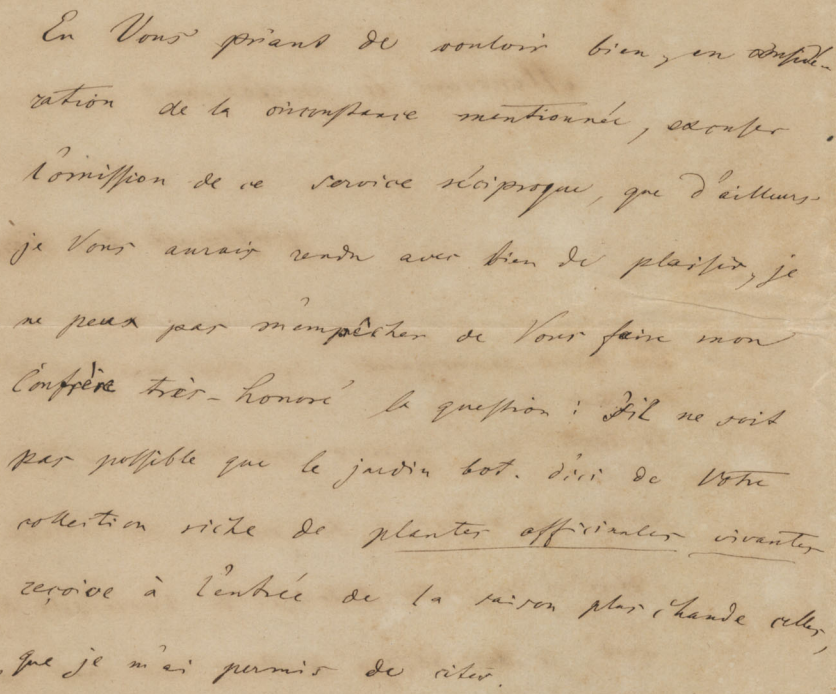 En Vous priant de vouloir bien, en considé-
ration de la circonstance mentionnée, excuser
l'omission de ce service réciproque, que d'ailleurs
je Vous aurais rendu avec bien de plaisir, je
ne peux pas m'empêcher de Vous faire mon
Confrère très-honoré la question: s'il ne soit
pas possible que le jardin bot. d'ici de Votre
collection riche de plantes officinales vivantes
reçoive à l'entrée de la saison plus chaude celles,
que je m'ai permis de citer.